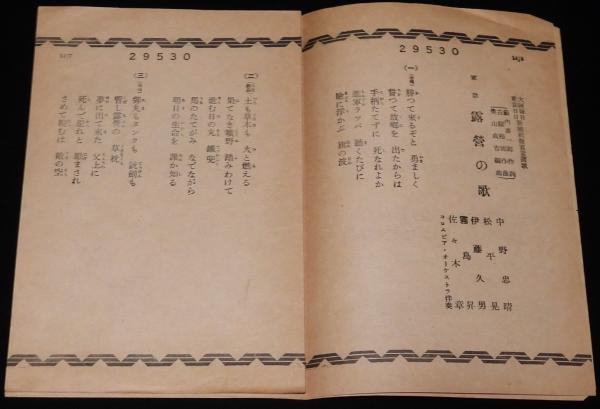 29530
大阪毎日
東京日日
藪内喜一郎作詞
古關裕而作曲
奥山貞吉編曲
軍歌
露營の歌
中野忠晴
松平晃
伊藤久男
霧島昇
佐々木章
コロムビア・オーケストラ伴奏
(一)
勝つて來るぞと 勇ましく
誓つて故鄕を 出たからは
手柄たてずに 死なれよか
進軍ラッパ 聽くたびに
瞼に浮かぶ 旗の波
29530
(二)
土も草木も 火と燃える
果てなき曠野 踏みわけて
進む日の丸 鐵兜
馬のたてがみ なでながら
明日の生命を 誰か知る
(三)
彈丸もタンクも 銃劍も
暫し露營の 草枕
夢に出て來た 父上に
死んで還れと 勵まされ
さめて睨むは 敵の空